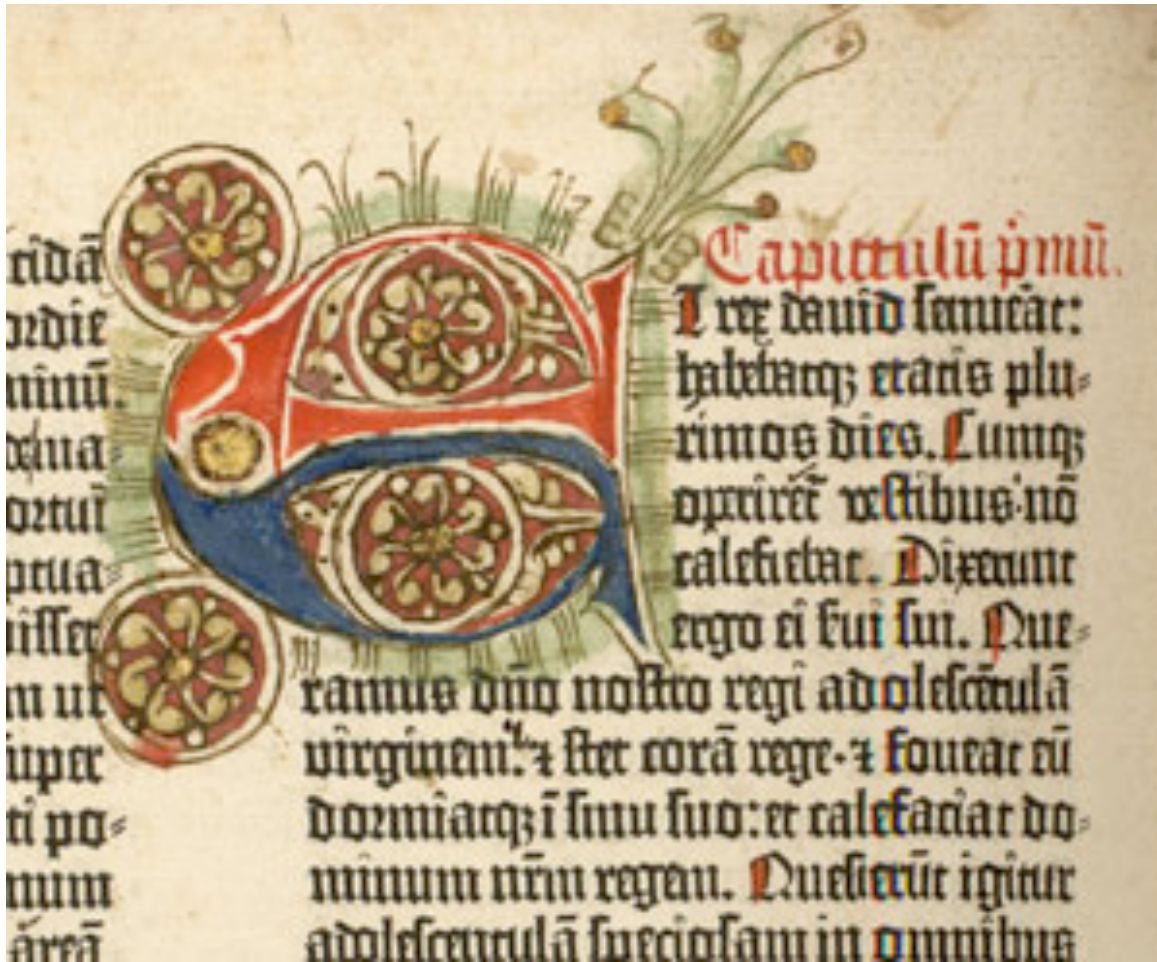 cidā
ordie
minū.
ortuī
ptua⸗
uisset
m ut
super
ti po⸗
num
areā
Capitulū p̄mū.
ET rex dauid senuerat:
habebatq; etatis plu⸗
rimos dies. Cumq;
operiret᷑ vestibus nō
calefiebat. Dixerunt
ergo ei s̄ui sui. Que⸗
ramus dn̄o nostro regi adolescētulā
virginem: ⁊ stet corā rege · ⁊ foueat eū
dormiatq; ī sinu suo: et calefaciat do⸗
minum nr̄m regem. Quesierūt igitur
adolescentulā speciosam in omnibus